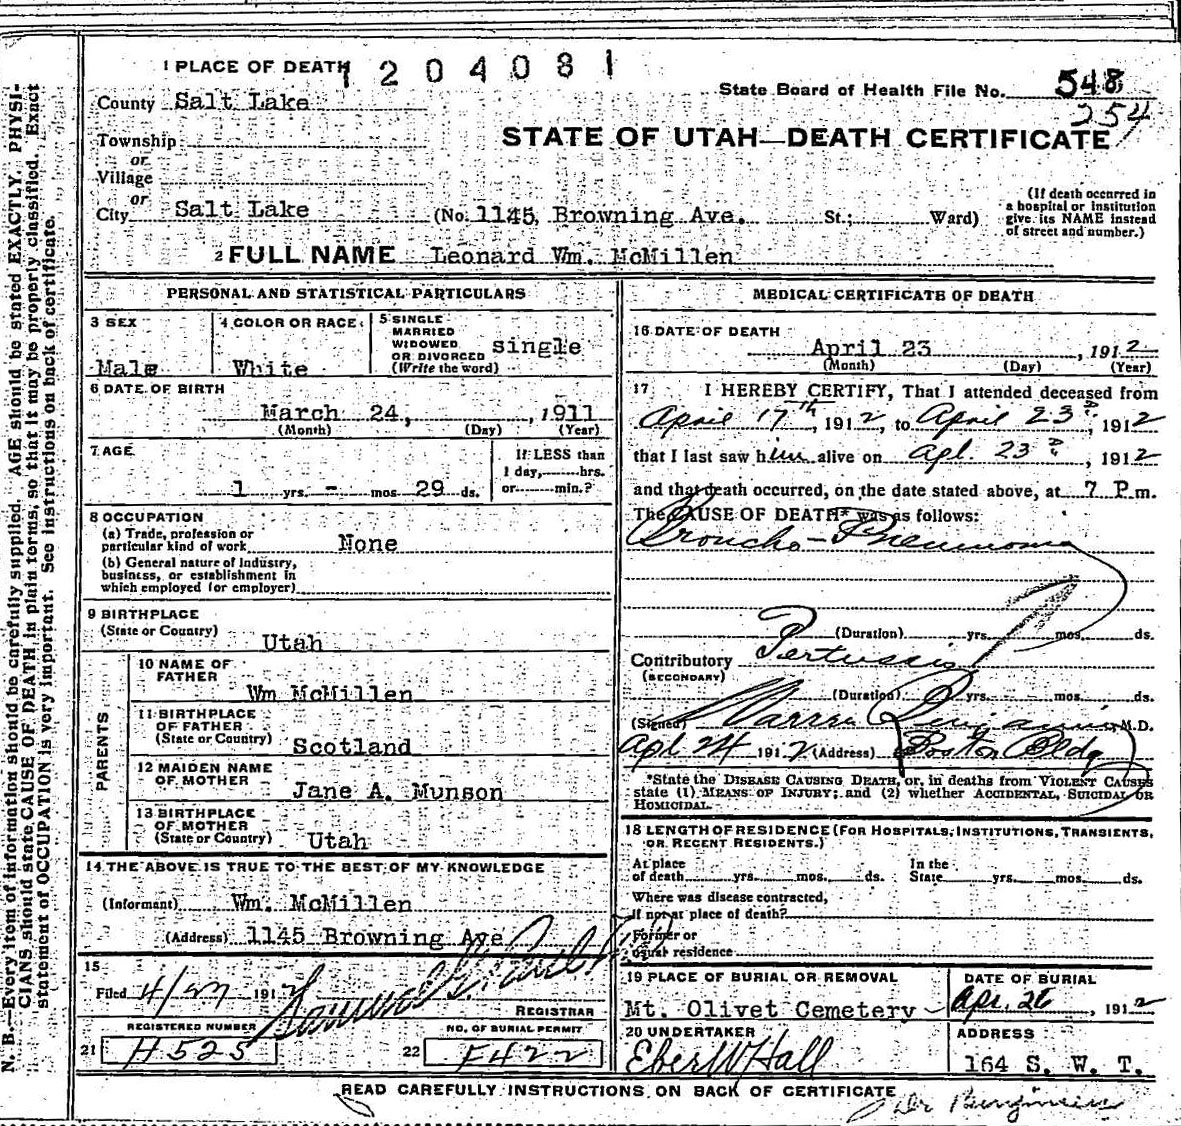 1 PLACE OF DEATH 1204081
State Board of Health File No. 548
254
County Salt Lake
STATE OF UTAH—DEATH CERTIFICATE
Township
or
Village
or
City Salt Lake (No. 1145, Browning Ave. St.; Ward)
(If death occurred in a hospital or institution give its NAME instead of street and number.)
2 FULL NAME Leonard Wm. McMillen
PERSONAL AND STATISTICAL PARTICULARS
3 SEX Male
4 COLOR OR RACE White
5 SINGLE
MARRIED
WIDOWED
OR DIVORCED
(Write the word) single
6 DATE OF BIRTH
March 24, , 1911
(Month) (Day) (Year)
7 AGE
1 yrs. - mos. 29 ds.
If LESS than
1 day, hrs.
or min.?
8 OCCUPATION
(a) Trade, profession or
particular kind of work None
(b) General nature of industry,
business, or establishment in
which employed (or employer)
9 BIRTHPLACE
(State or Country) Utah
PARENTS
10 NAME OF
FATHER Wm McMillen
11 BIRTHPLACE
OF FATHER
(State or Country) Scotland
12 MAIDEN NAME
OF MOTHER Jane A. Munson
13 BIRTHPLACE
OF MOTHER
(State or Country) Utah
14 THE ABOVE IS TRUE TO THE BEST OF MY KNOWLEDGE
(Informant) Wm. McMillen
(Address) 1145 Browning Ave
15
Filed 4/27 1912
REGISTRAR
REGISTERED NUMBER NO. OF BURIAL PERMIT
21 H525 22 F422
MEDICAL CERTIFICATE OF DEATH
16 DATE OF DEATH
April 23 , 1912
(Month) (Day) (Year)
17 I HEREBY CERTIFY, That I attended deceased from
April 17th, 1912, to April 23d, 1912
that I last saw him alive on Apl. 23d, 1912
and that death occurred, on the date stated above, at 7 P.m.
The CAUSE OF DEATH* was as follows:
Broncho-Pneumonia
(Duration) yrs. mos. ds.
Contributory Pertussis
(SECONDARY)
(Duration) yrs. mos. ds.
(Signed) Warren Benjamin, M.D.
Apl 24 1912 (Address) Boston Bldg
*State the DISEASE CAUSING DEATH, or, in deaths from VIOLENT CAUSES
state (1) MEANS OF INJURY; and (2) whether ACCIDENTAL, SUICIDAL OR
HOMICIDAL.
18 LENGTH OF RESIDENCE (FOR HOSPITALS, INSTITUTIONS, TRANSIENTS,
OR RECENT RESIDENTS.)
At place In the
of death yrs. mos. ds. State yrs. mos. ds.
Where was disease contracted,
If not at place of death?
Former or
usual residence
19 PLACE OF BURIAL OR REMOVAL DATE OF BURIAL
Mt. Olivet Cemetery Apr. 26, 1912
20 UNDERTAKER ADDRESS
Eber W Hall 164 S. W. T.
READ CAREFULLY INSTRUCTIONS ON BACK OF CERTIFICATE
Dr Benjamin
N. B.—Every item of information should be carefully supplied. AGE should be stated EXACTLY. PHYSI-
CIANS should state CAUSE OF DEATH in plain terms, so that it may be properly classified. Exact
statement of OCCUPATION is very important. See instructions on back of certificate.